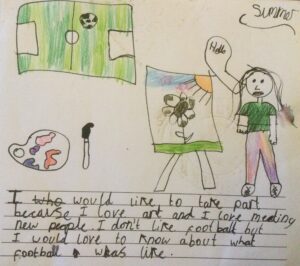 Summer
Hello
I who would like to take part
because I love art and I love meeting
new people. I don't like football but
I would love to know about what
football was like.